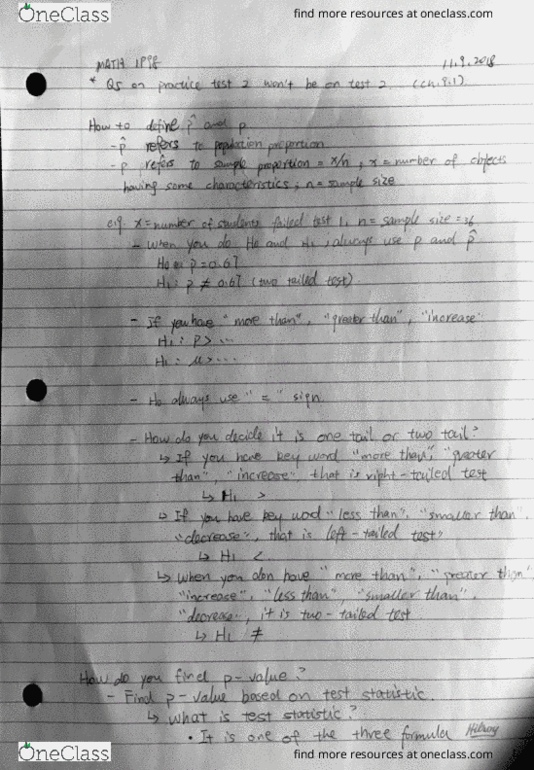 OneClass
find more resources at oneclass.com
MATH 1P98
11.9.2018
* Q5 on practice test 2 won't be on test 2. (ch.9.1)
How to define p̂ and p
- p̂ refers to population proportion
- p refers to sample proportion = x/n, x = number of objects
having some characteristics, n = sample size
e.g. x = number of students failed test 1, n = sample size = 36
- When you do H0 and H1, always use p and p̂
H0 : p = 0.67
H1 : p ≠ 0.67 (two tailed test)
- If you have "more than", "greater than", "increase"
H1 : p > ...
H1 : μ > ...
- H0 always use "=" sign.
- How do you decide it is one tail or two tail?
↳ If you have key word "more than", "greater
than", "increase", that is right-tailed test
↳ H1 >
↳ If you have key word "less than", "smaller than",
"decrease", that is left-tailed test
↳ H1 <
↳ When you don have "more than", "greater than",
"increase", "less than", "smaller than",
"decrease", it is two-tailed test
↳ H1 ≠
How do you find p-value?
- Find p-value based on test statistic.
↳ What is test statistic?
• It is one of the three formula
Hilroy
OneClass
find more resources at oneclass.com